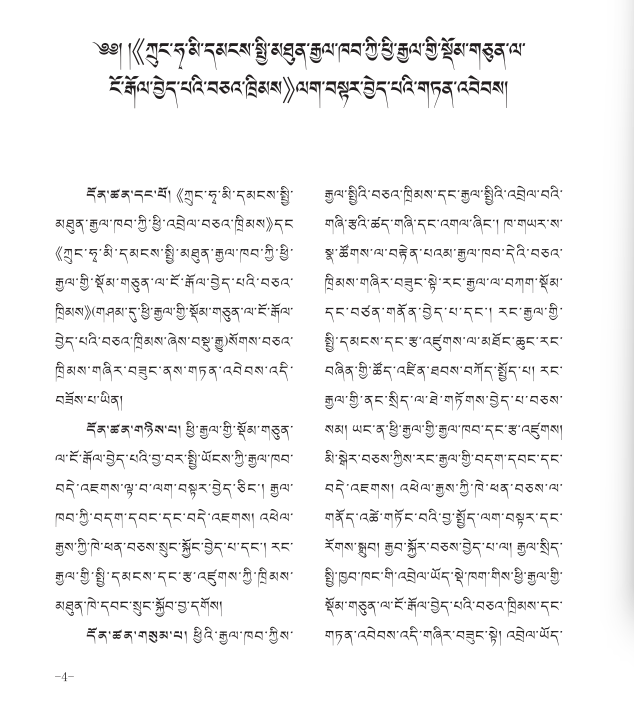 ༄༅། །《ཀྲུང་ཧྭ་མི་དམངས་སྤྱི་མཐུན་རྒྱལ་ཁབ་ཀྱི་ཕྱི་རྒྱལ་གྱི་སྡོམ་གཅུན་ལ་
ངོ་རྒོལ་བྱེད་པའི་བཅའ་ཁྲིམས》ལག་བསྟར་བྱེད་པའི་གཏན་འབེབས།
དོན་ཚན་དང་པོ། 《ཀྲུང་ཧྭ་མི་དམངས་སྤྱི་
མཐུན་རྒྱལ་ཁབ་ཀྱི་ཕྱི་འབྲེལ་བཅའ་ཁྲིམས》དང་
《ཀྲུང་ཧྭ་མི་དམངས་སྤྱི་མཐུན་རྒྱལ་ཁབ་ཀྱི་ཕྱི་
རྒྱལ་གྱི་སྡོམ་གཅུན་ལ་ངོ་རྒོལ་བྱེད་པའི་བཅའ་
ཁྲིམས》(གཤམ་དུ་ཕྱི་རྒྱལ་གྱི་སྡོམ་གཅུན་ལ་ངོ་རྒོལ་
བྱེད་པའི་བཅའ་ཁྲིམས་ཞེས་བསྡུ་རྒྱུ)སོགས་བཅའ་
ཁྲིམས་གཞིར་བཟུང་ནས་གཏན་འབེབས་འདི་
བཟོས་པ་ཡིན།
དོན་ཚན་གཉིས་པ། ཕྱི་རྒྱལ་གྱི་སྡོམ་གཅུན་
ལ་ངོ་རྒོལ་བྱེད་པའི་བྱ་བར་སྤྱི་ཡོངས་ཀྱི་རྒྱལ་ཁབ་
བདེ་འཇགས་ལྟ་བ་ལག་བསྟར་བྱེད་ཅིང་། རྒྱལ་
ཁབ་ཀྱི་བདག་དབང་དང་བདེ་འཇགས། འཕེལ་
རྒྱས་ཀྱི་ཁེ་ཕན་བཅས་སྲུང་སྐྱོང་བྱེད་པ་དང་། རང་
རྒྱལ་གྱི་སྤྱི་དམངས་དང་རྩ་འཛུགས་ཀྱི་ཁྲིམས་
མཐུན་ཁེ་དབང་སྲུང་སྐྱོབ་བྱ་དགོས།
དོན་ཚན་གསུམ་པ། ཕྱིའི་རྒྱལ་ཁབ་ཀྱིས་
རྒྱལ་སྤྱིའི་བཅའ་ཁྲིམས་དང་རྒྱལ་སྤྱིའི་འབྲེལ་བའི་
གཞི་རྩའི་ཚད་གཞི་དང་འགལ་ཞིང་། ཁ་གཡར་ས་
སྣ་ཚོགས་ལ་བརྟེན་པའམ་རྒྱལ་ཁབ་དེའི་བཅའ་
ཁྲིམས་གཞིར་བཟུང་སྟེ་རང་རྒྱལ་ལ་བཀག་སྡོམ་
དང་བཙན་གནོན་བྱེད་པ་དང་། རང་རྒྱལ་གྱི་
སྤྱི་དམངས་དང་རྩ་འཛུགས་ལ་མཐོང་ཆུང་རང་
བཞིན་གྱི་ཚོད་འཛིན་ཐབས་བཀོད་སྤྱོད་པ། རང་
རྒྱལ་གྱི་ནང་སྲིད་ལ་ཐེ་གཏོགས་བྱེད་པ་བཅས་
སམ། ཡང་ན་ཕྱི་རྒྱལ་གྱི་རྒྱལ་ཁབ་དང་རྩ་འཛུགས།
མི་སྒེར་བཅས་ཀྱིས་རང་རྒྱལ་གྱི་བདག་དབང་དང་
བདེ་འཇགས། འཕེལ་རྒྱས་ཀྱི་ཁེ་ཕན་བཅས་ལ་
གནོད་འཚེ་གཏོང་བའི་བྱ་སྤྱོད་ལག་བསྟར་དང་
རོགས་སྒྲུབ། རྒྱབ་སྐྱོར་བཅས་བྱེད་པ་ལ། རྒྱལ་སྲིད་
སྤྱི་ཁྱབ་ཁང་གི་འབྲེལ་ཡོད་སྡེ་ཁག་གིས་ཕྱི་རྒྱལ་གྱི་
སྡོམ་གཅུན་ལ་ངོ་རྒོལ་བྱེད་པའི་བཅའ་ཁྲིམས་དང་
གཏན་འབེབས་འདི་གཞིར་བཟུང་སྟེ། འབྲེལ་ཡོད་
-4-